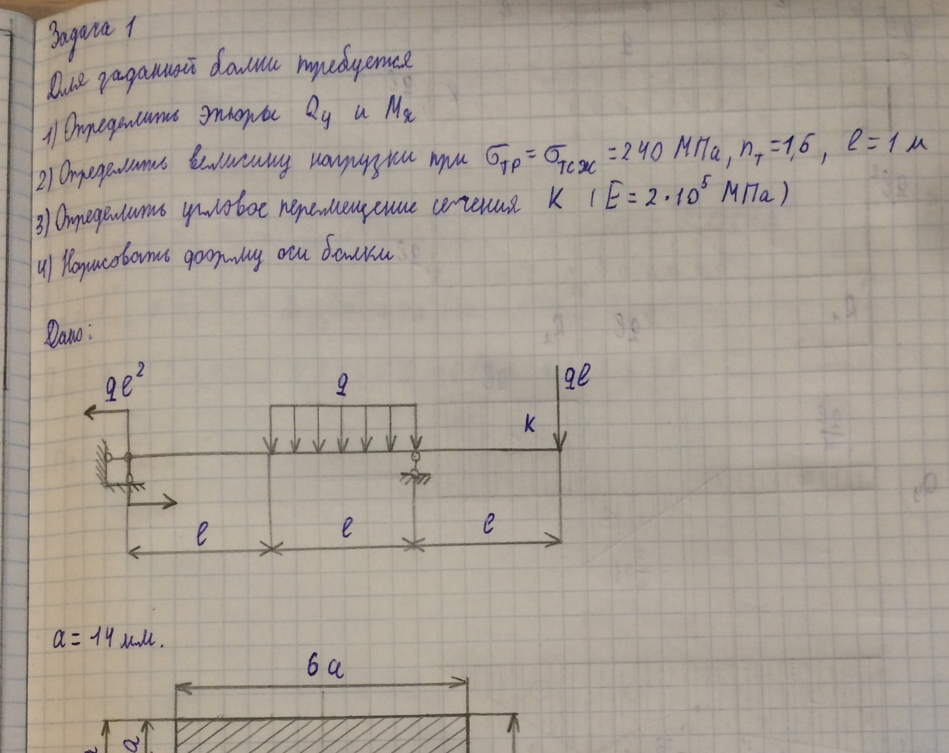 Задача 1
Для заданной балки требуется
1) Определить эпюры Qy и Mx
2) Определить величину нагрузки при σтр = σтсж = 240 МПа, nт = 1,5, l = 1 м
3) Определить угловое перемещение сечения K (E = 2·10⁵ МПа)
4) Нарисовать форму оси балки
Дано:
ql²
q
ql
K
l
l
l
a = 14 мм.
6a
a
a